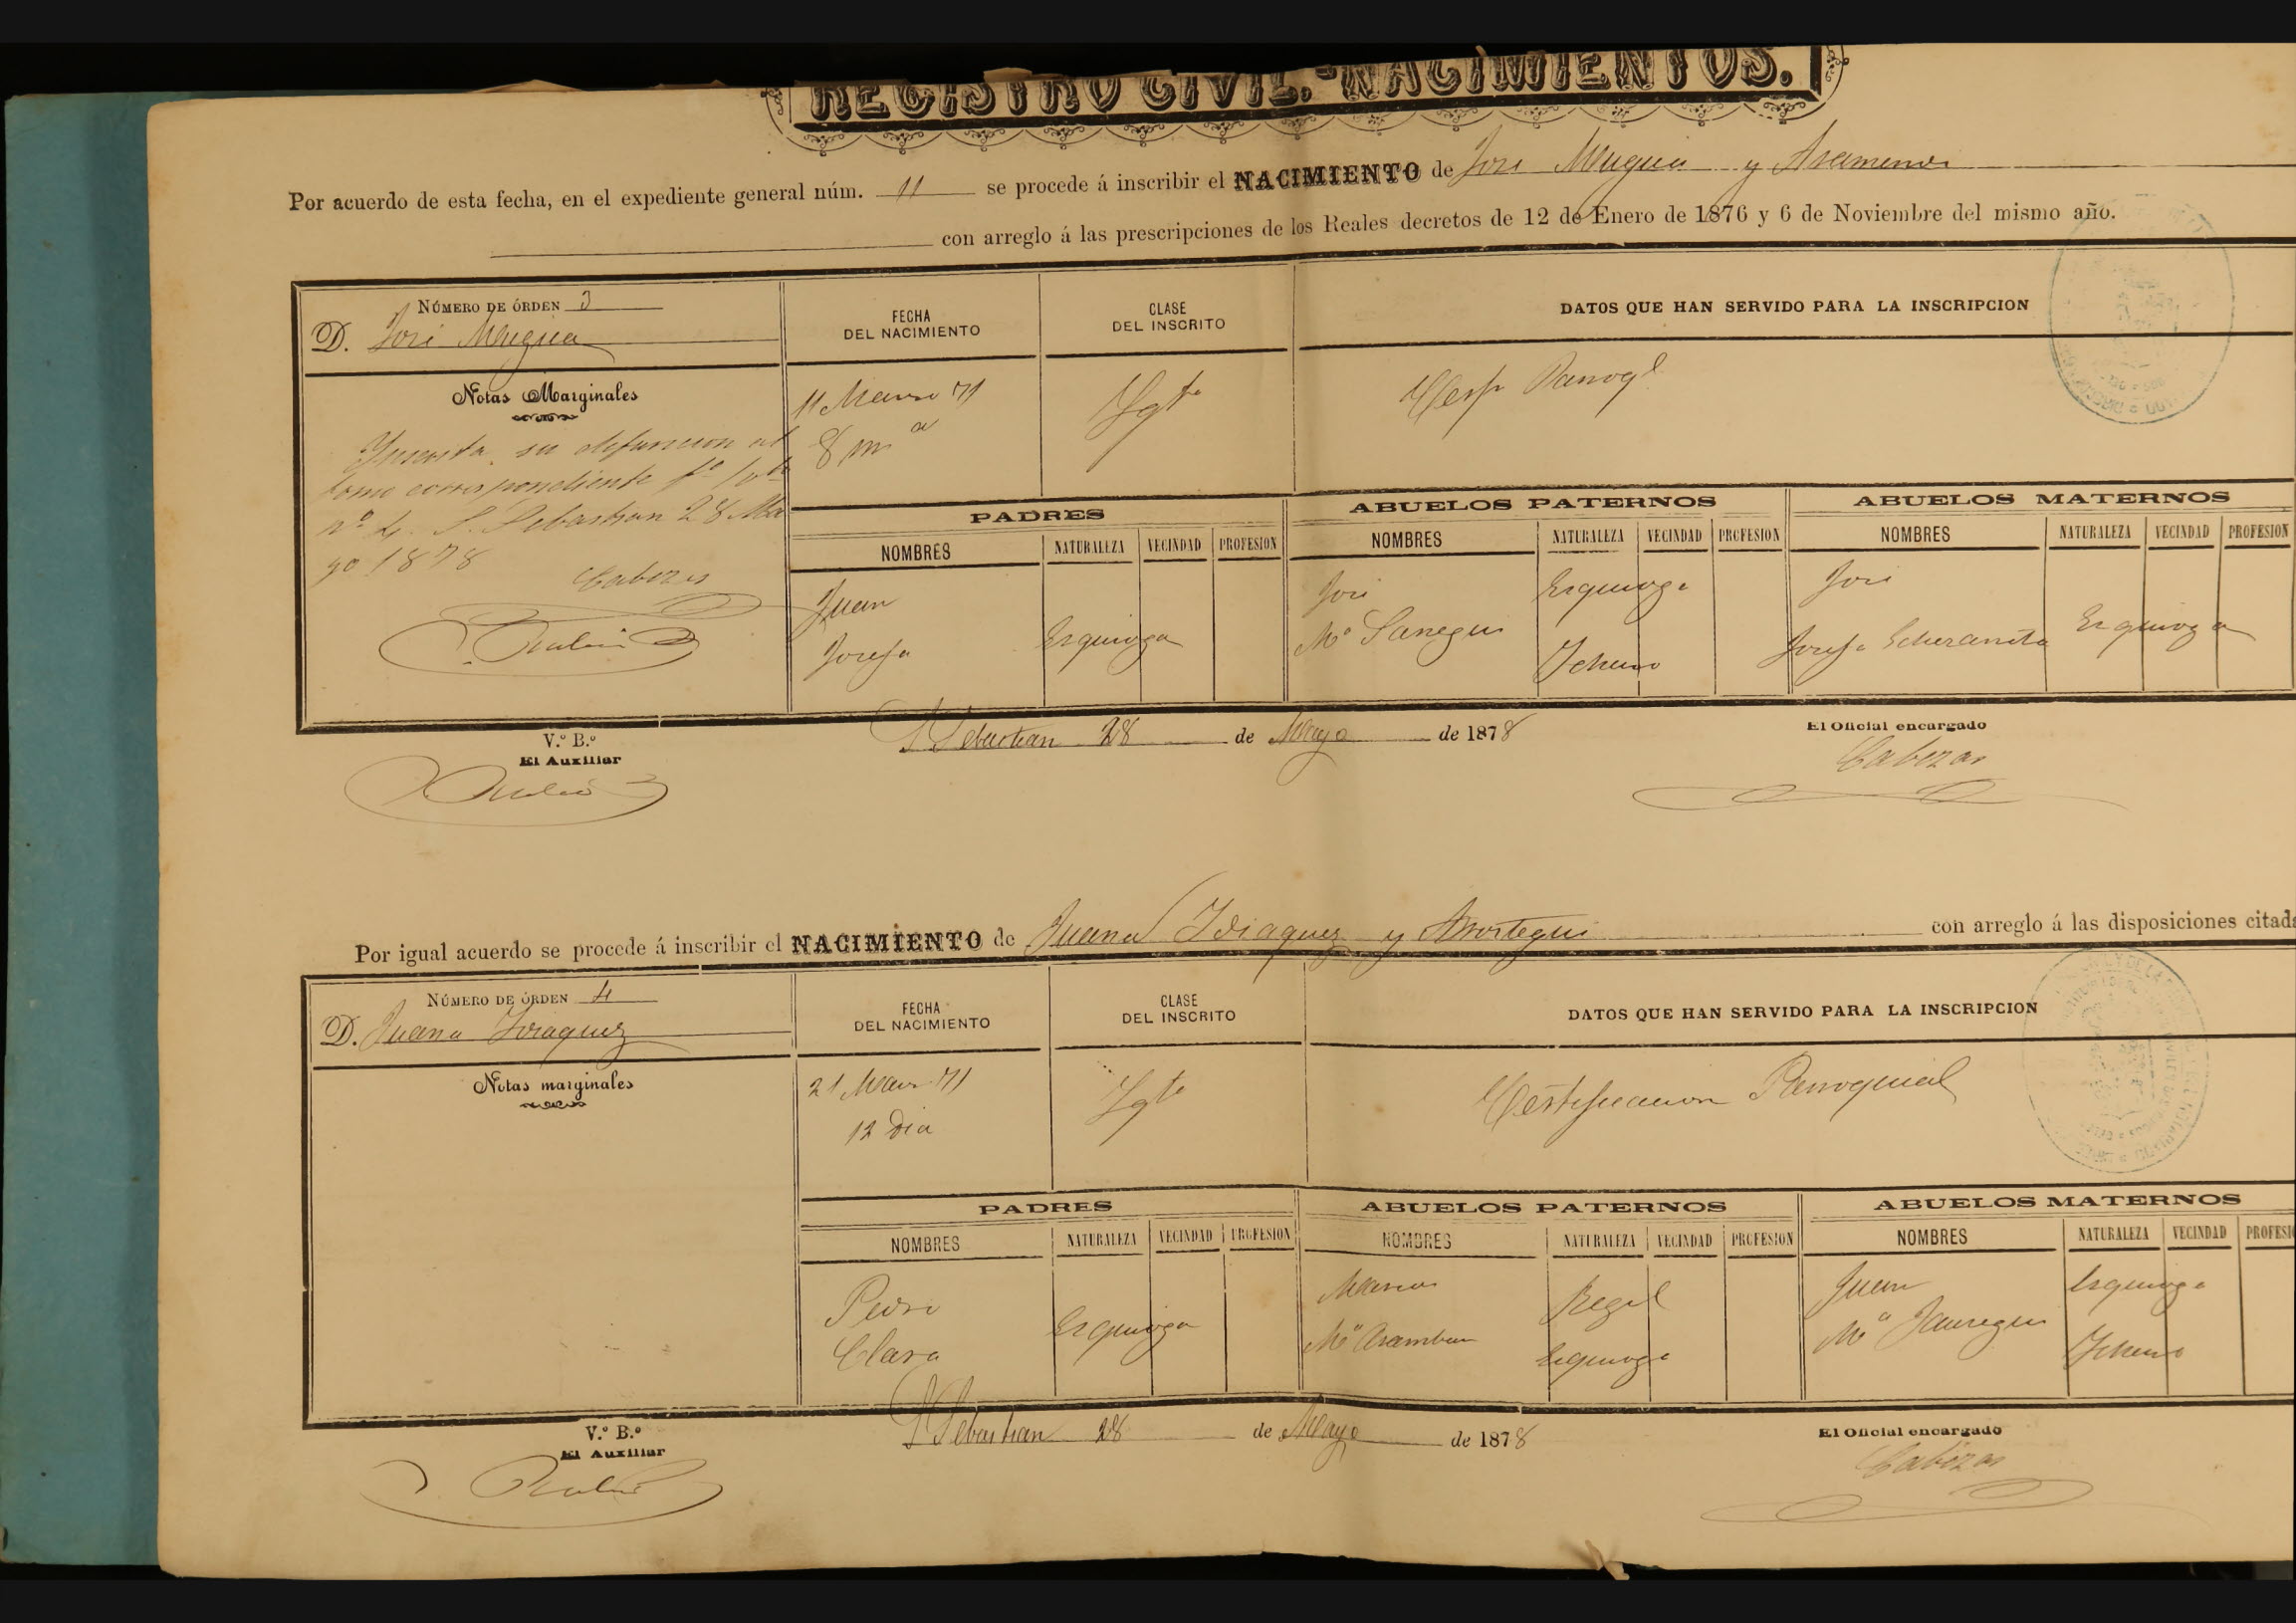 REGISTRO CIVIL.-NACIMIENTOS.
Por acuerdo de esta fecha, en el expediente general núm. 11 se procede á inscribir el NACIMIENTO de José Mugica y
con arreglo á las prescripciones de los Reales decretos de 12 de Enero de 1876 y 6 de Noviembre del mismo año.
NÚMERO DE ÓRDEN 3
D. José Mugica
FECHA DEL NACIMIENTO
CLASE DEL INSCRITO
DATOS QUE HAN SERVIDO PARA LA INSCRIPCION
Notas Marginales
Inscrita su defuncion al
tomo correspondiente fº
nº 4. S. Sebastian 28 Ma
yo 1878
Cabezas
11 Marzo 71
8 mª
Parroql
PADRES
ABUELOS PATERNOS
ABUELOS MATERNOS
NOMBRES NATURALEZA VECINDAD PROFESION NOMBRES NATURALEZA VECINDAD PROFESION NOMBRES NATURALEZA VECINDAD PROFESION
Juan
Josefa Esquioga
José Esquioga
Mª Ichaso
José
Josefa Esquioga
V.º B.º
El Auxiliar
S Sebastian 28 de Mayo de 1878
El Oficial encargado
Cabezas
Por igual acuerdo se procede á inscribir el NACIMIENTO de Juana Idiaquez y con arreglo á las disposiciones citada
NÚMERO DE ÓRDEN 4
D. Juana Idiaquez
FECHA DEL NACIMIENTO
CLASE DEL INSCRITO
DATOS QUE HAN SERVIDO PARA LA INSCRIPCION
Notas marginales
21 Marzo 71
12 dia
Certificacion Parroquial
PADRES
ABUELOS PATERNOS
ABUELOS MATERNOS
NOMBRES NATURALEZA VECINDAD PROFESION NOMBRES NATURALEZA VECINDAD PROFESION NOMBRES NATURALEZA VECINDAD PROFESI
Pedro
Clara Esquioga
Regil
Mª Aramburu Esquioga
Juan Esquioga
Mª Jauregui Ichaso
V.º B.º
El Auxiliar
S Sebastian 28 de Mayo de 1878
El Oficial encargado
Cabezas